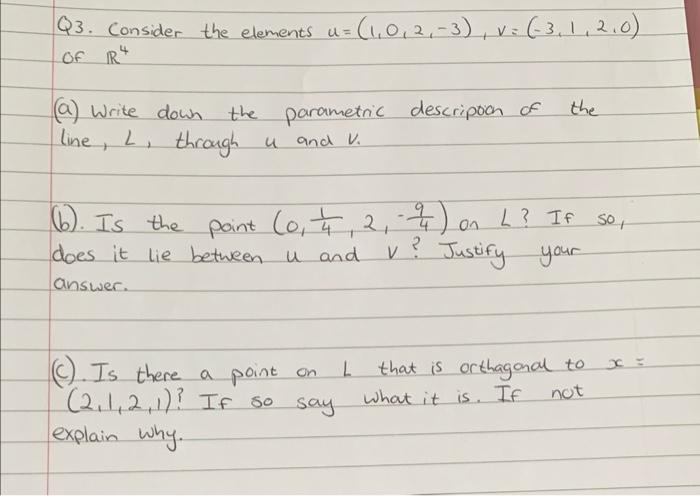 Q3. Consider the elements u = (1,0,2,-3), v = (-3,1,2,0)
of ℝ⁴
(a) Write down the parametric descripoon of the
line, L, through u and v.
(b). Is the point (0, 1/4, 2, -9/4) on L? If so,
does it lie between u and v? Justify your
answer.
(c). Is there a point on L that is orthagonal to x =
(2,1,2,1)? If so say what it is. If not
explain why.